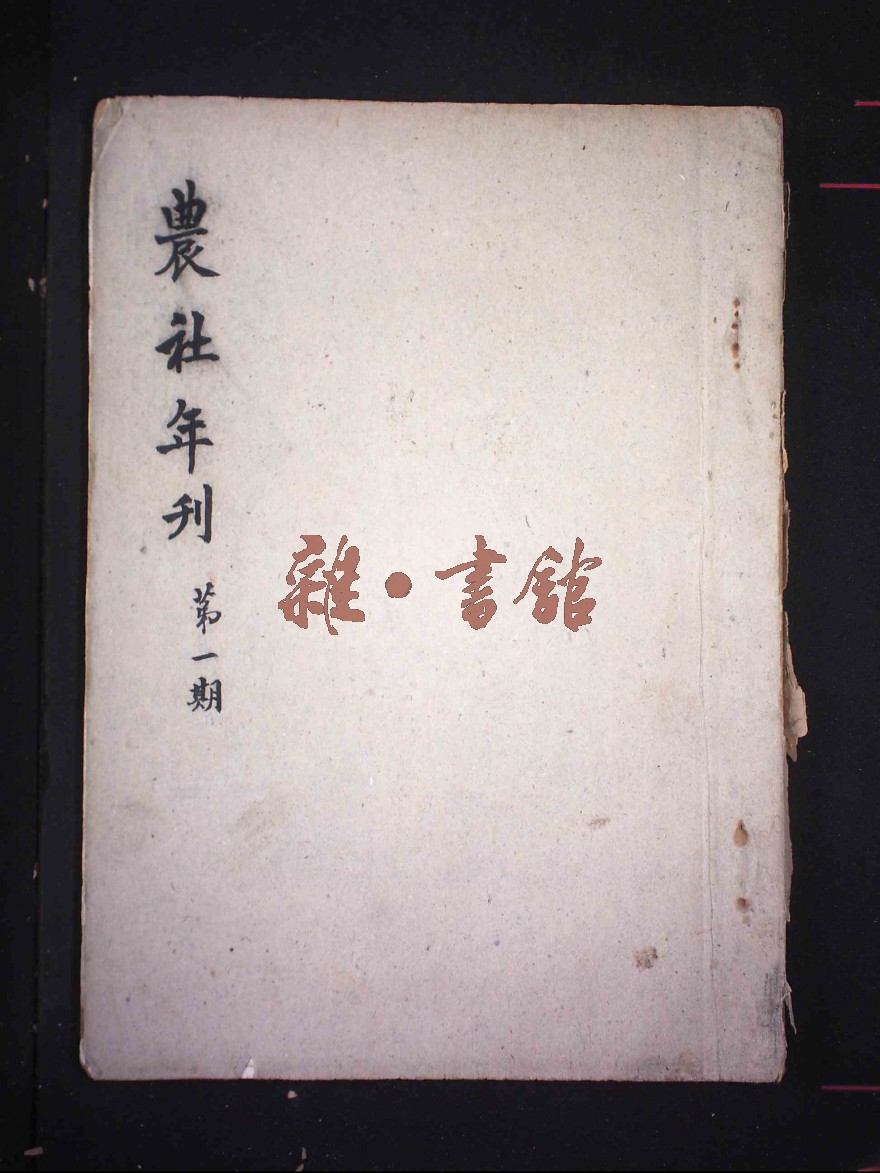 農社年刊
第一期
雜·書館